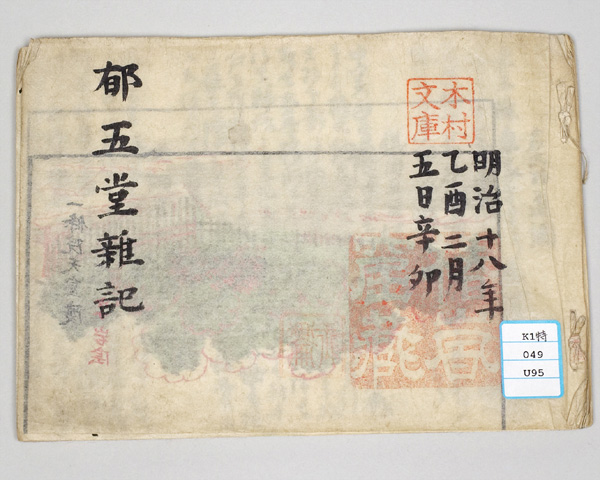 木村
文庫
明治十八年
乙酉二月
五日辛卯
郁五堂雜記
K1特
049
U95